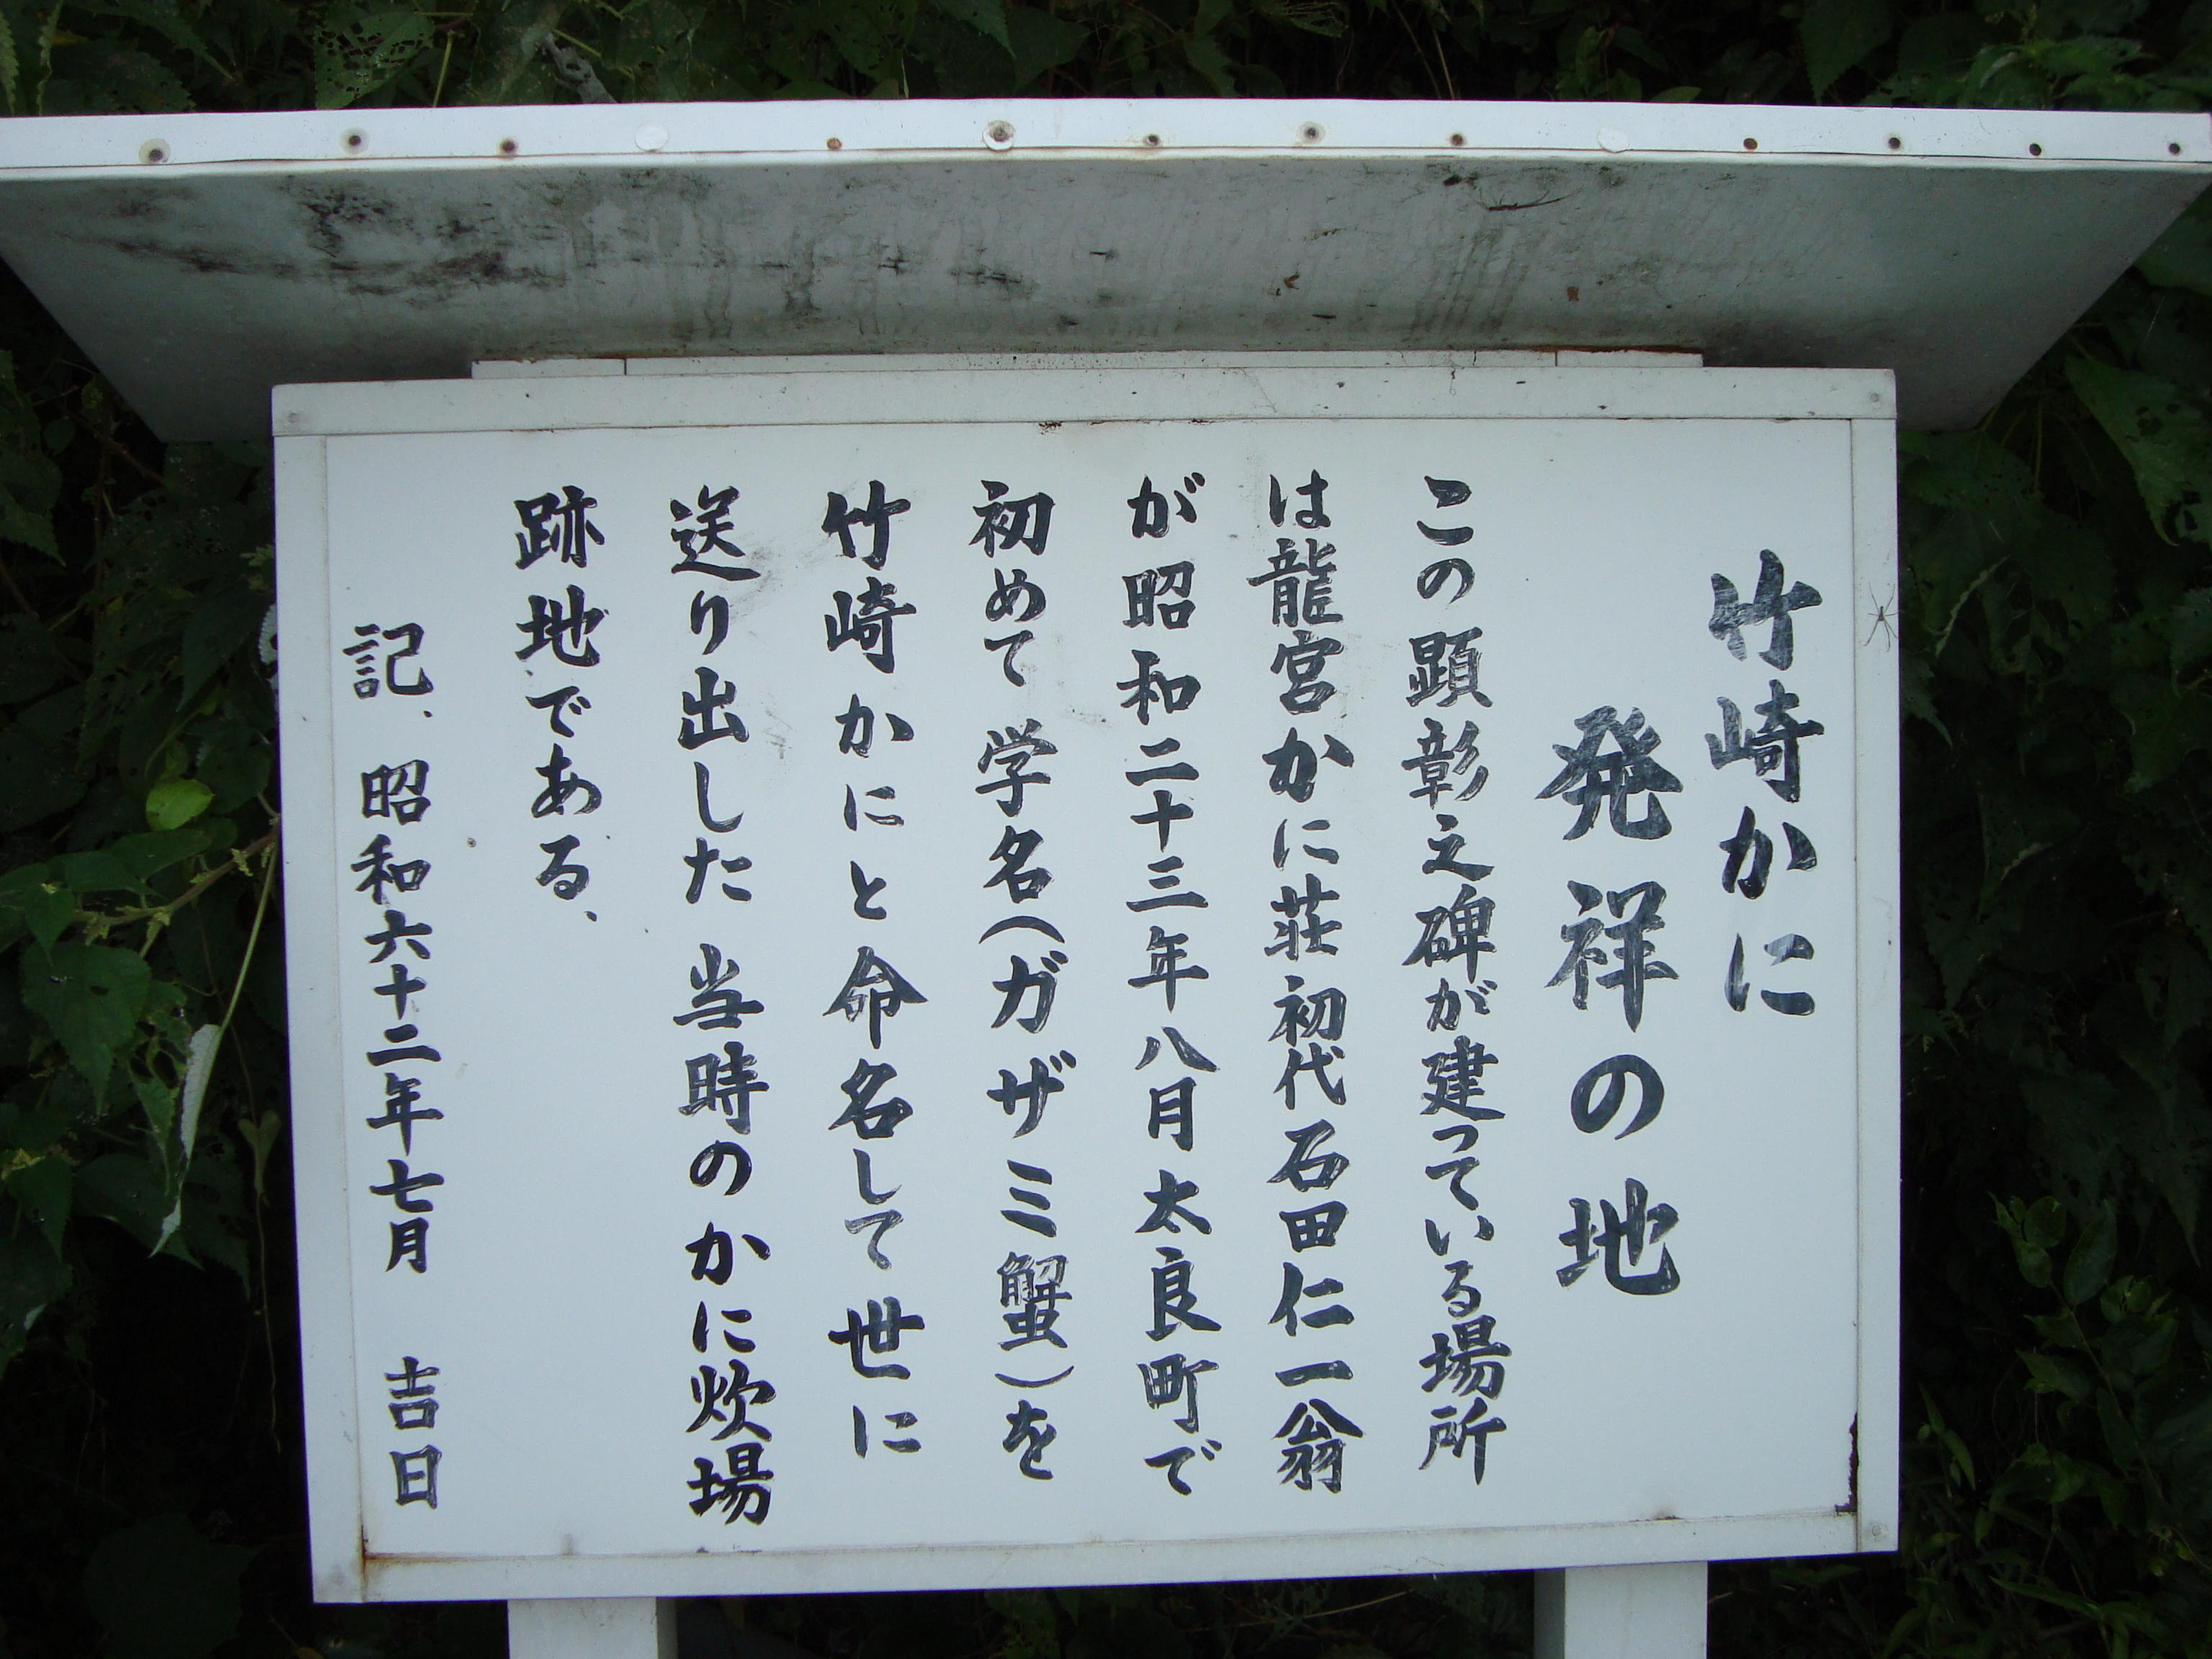 竹崎かに
発祥の地
この顕彰之碑が建っている場所
は龍宮かに荘初代石田仁一翁
が昭和二十三年八月太良町で
初めて学名(ガザミ蟹)を
竹崎かにと命名して世に
送り出した当時のかに炊場
跡地である、
記、昭和六十二年七月 吉日